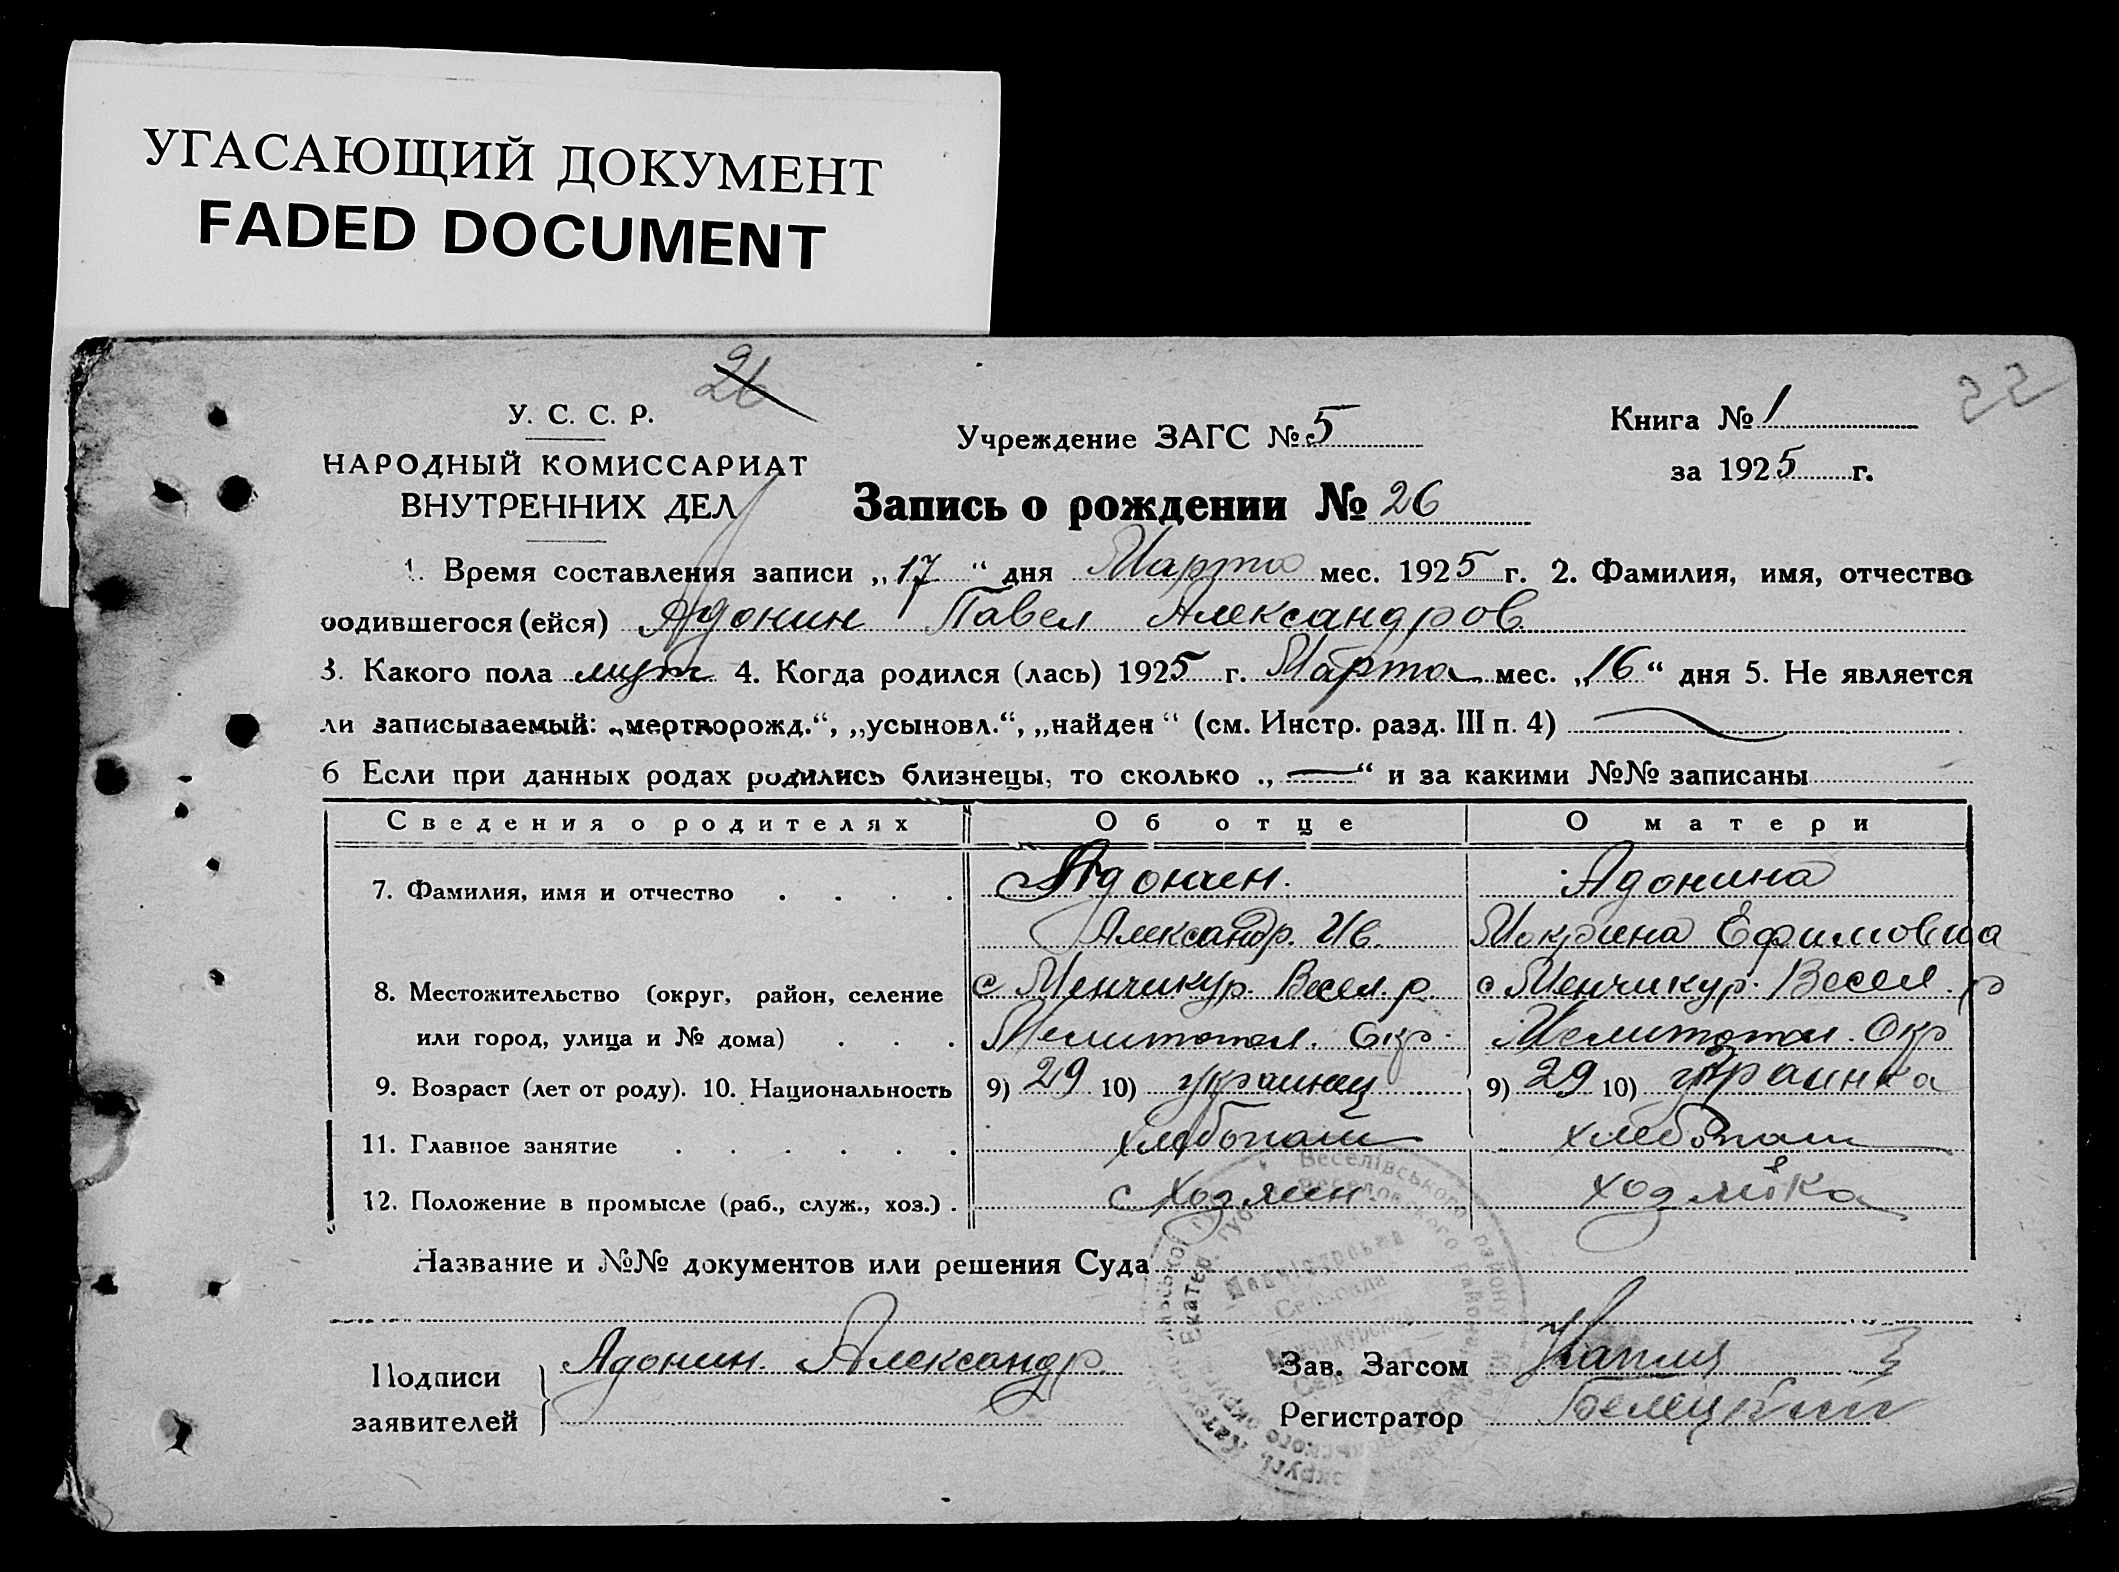 УГАСАЮЩИЙ ДОКУМЕНТ
FADED DOCUMENT
26
22
У. С. С. Р.
НАРОДНЫЙ КОМИССАРИАТ
ВНУТРЕННИХ ДЕЛ
Учреждение ЗАГС № 5
Книга № 1
за 1925 г.
Запись о рождении № 26
1. Время составления записи „17“ дня Марта мес. 1925 г. 2. Фамилия, имя, отчество
родившегося (ейся) Адонин Павел Александров
3. Какого пола муж 4. Когда родился (лась) 1925 г. Марта мес. „16“ дня 5. Не является
ли записываемый: „мертворожд.“, „усыновл.“, „найден“ (см. Инстр. разд. III п. 4) —
6 Если при данных родах родились близнецы, то сколько „—“ и за какими №№ записаны
Сведения о родителях Об отце О матери
7. Фамилия, имя и отчество . . . . Адонин. Адонина
Александр. Ив. Мокрина Ефимовна
8. Местожительство (округ, район, селение с Менчикур. Весел. р. с Менчикур. Весел. р
или город, улица и № дома) . . . Мелитопол. Окр. Мелитопол. Окр
9. Возраст (лет от роду). 10. Национальность 9) 29 10) украинец 9) 29 10) украинка
11. Главное занятие . . . . . . хлебопаш хлебопаш
12. Положение в промысле (раб., служ., хоз.) . хозяин. хозяйка
Название и №№ документов или решения Суда
Веселівського району
Веселовского района
Екатер. губ.
Подписи
заявителей
Адонин. Александр
Зав. Загсом
Регистратор Белецкий